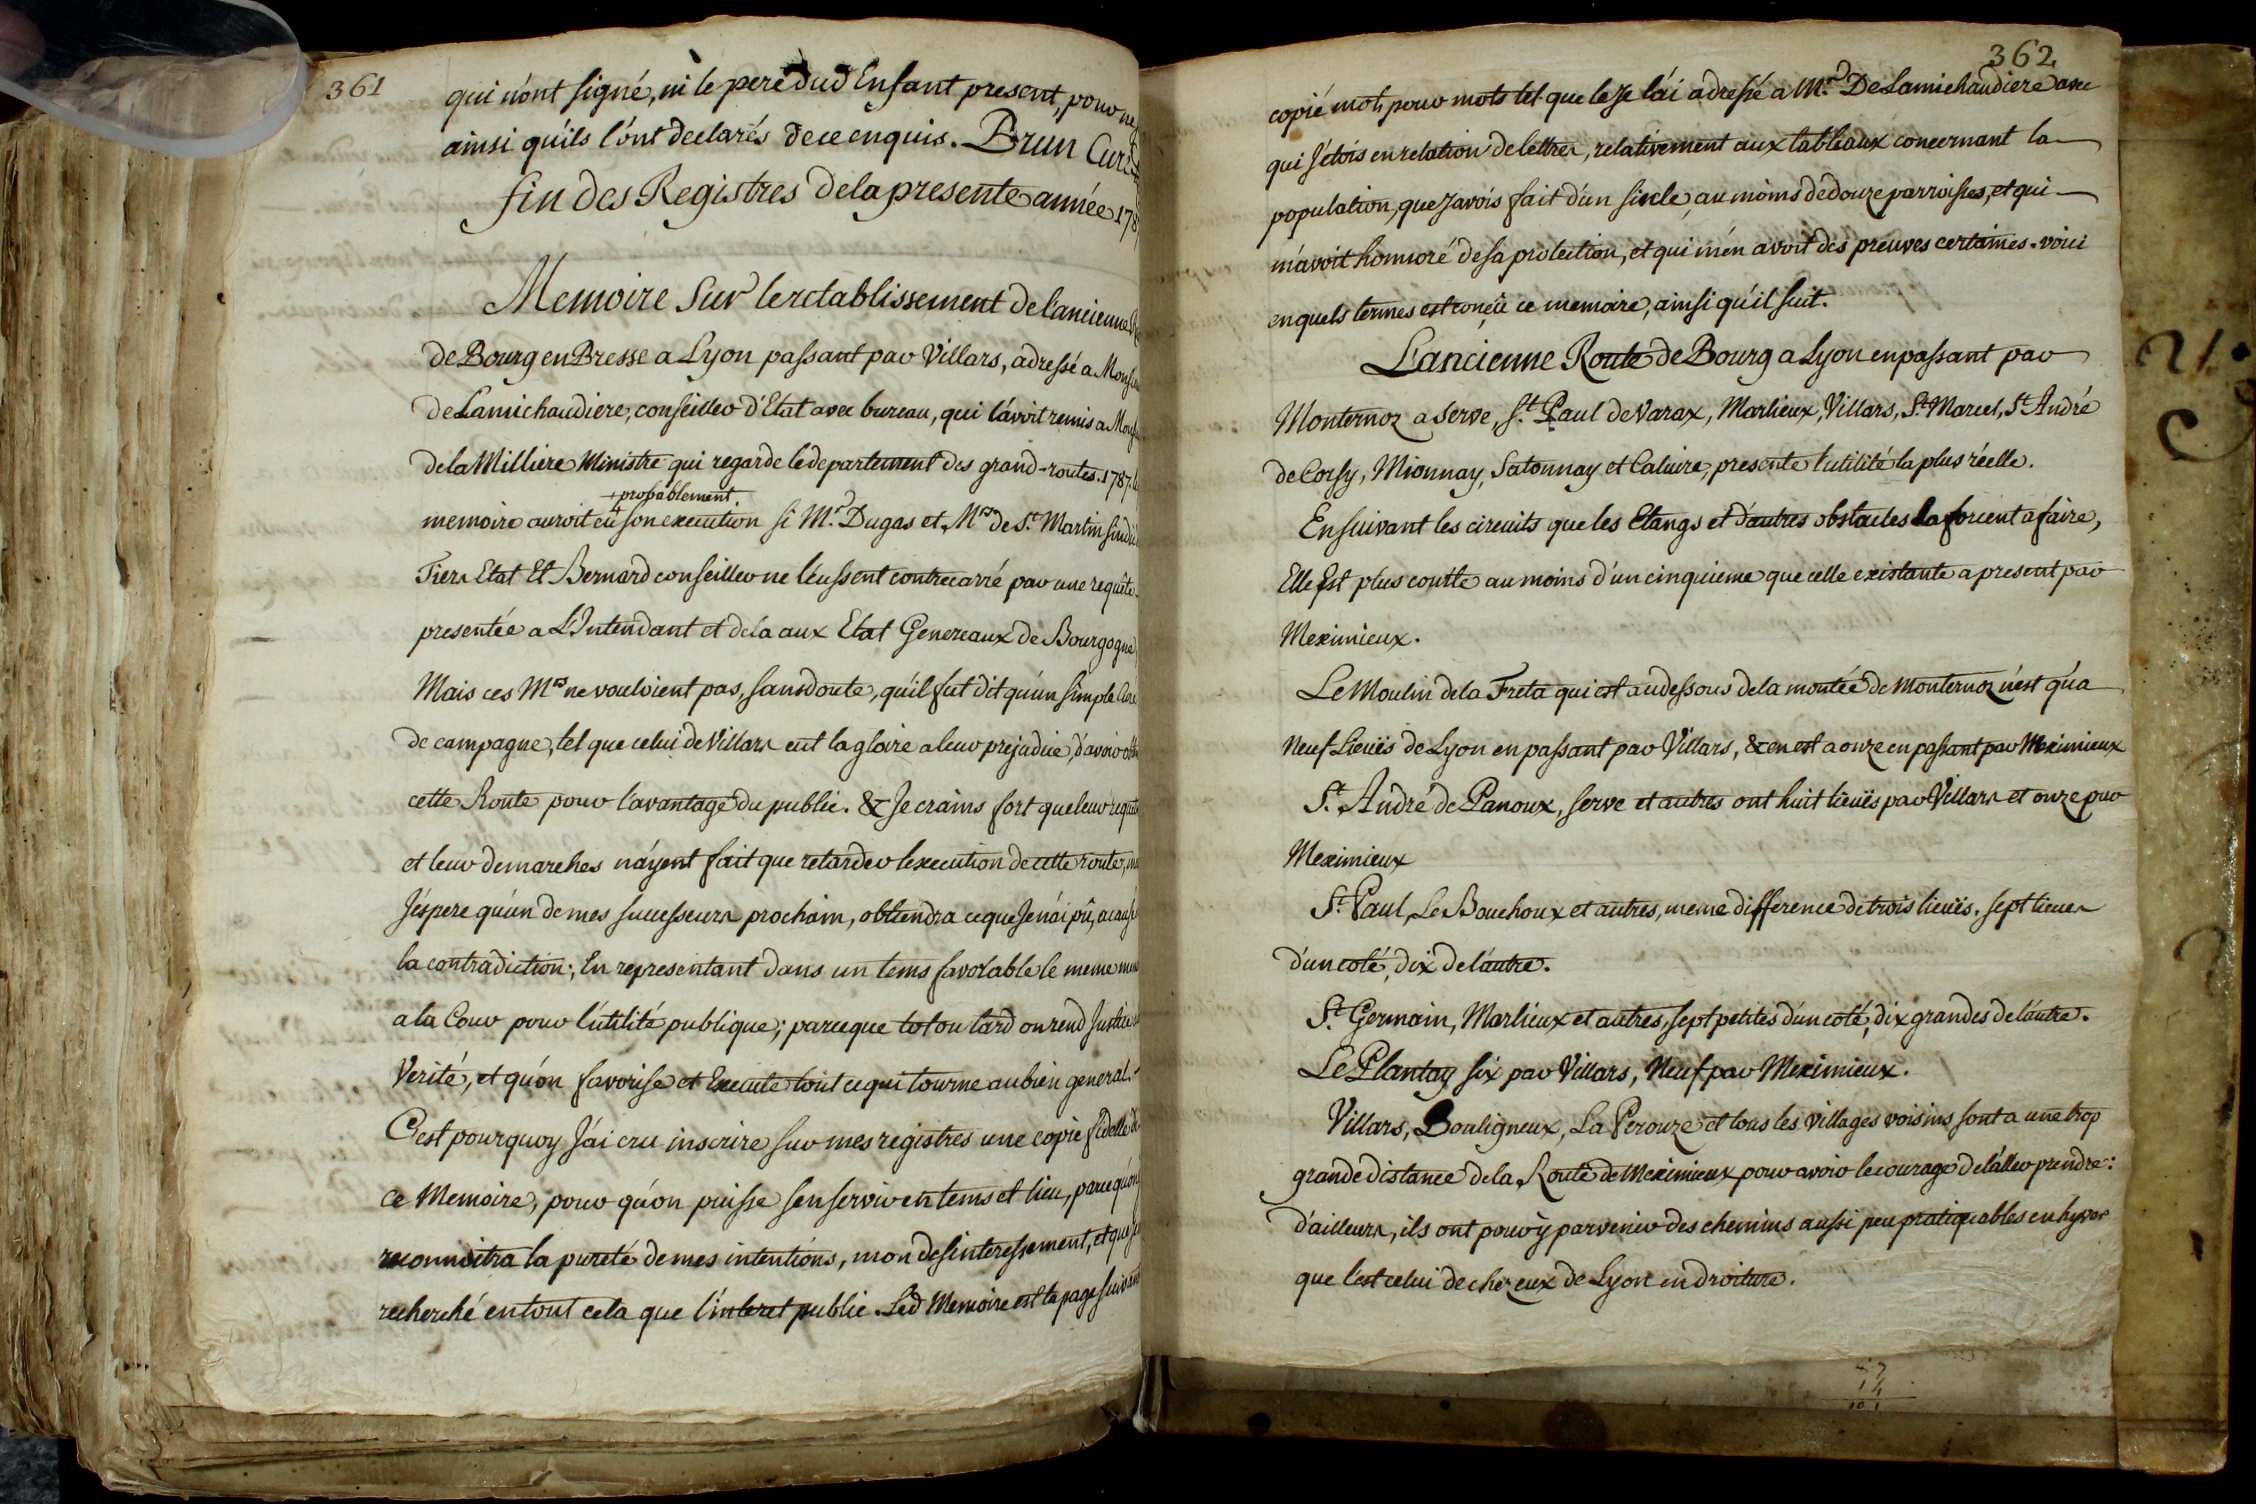 361
qui n'ont signé, ni le pere dud Enfant present, pour
ainsi qu'ils l'ont declarés de ce enquis. Brun Curé
fin des Registres de la presente année 178
Memoire Sur le retablissement de l'ancienne
de Bourg en Bresse a Lyon passant par Villars, adressé a
de Lamichaudiere, conseiller d'Etat avec bureau, qui l'avoit remis a
de la Milliere Ministre qui regarde le departement des grand-routes. 1787.
+ probablement.
memoire auroit eu + son execution si Mr. Dugas et Mrs de St. Martin
Tiers Etat Et Bernard conseiller ne l'eussent contrecarré par une requête
presentée a L'Intendant et de la aux Etat Genereaux de Bourgogne
Mais ces Mrs ne vouloient pas, sans doute, qu'il fut dit qu'un simple Curé
de campagne, tel que celui de Villars eut la gloire a leur prejudice, d'avoir
cette Route pour l'avantage du public. & Je crains fort que leur requete
et leur demarches n'ayent fait que retarder l'execution de cette route,
J'espere qu'un de mes successeurs prochain, obtiendra ce que Je n'ai pû,
la contradiction; En representant dans un tems favorable le meme
a la Cour pour l'utilité publique; parceque tot ou tard on rend Justice
Verité, et qu'on favorise et Execute tout ce qui tourne au bien general.
C'est pourquoy J'ai cru inscrire sur mes registres une copie fidelle
ce Memoire, pour qu'on puisse s'en servir en tems et lieu, parce qu'on
reconnoitra la pureté de mes intentions, mon desinteressement, et que
recherché en tout cela que l'interet public. Led Memoire est la page suivante
362
copié mots pour mots tel que le Je l'ai adressé a Mr. De Lamichaudiere avec
qui J'etois en relation de lettres, relativement aux tableaux concernant la
population, que J'avois fait d'un siecle, au moins de douze parroisses, et qui
m'avoit honnoré de sa protection, et qui m'en avoit des preuves certaines. voici
en quels termes est conçu ce memoire, ainsi qu'il suit.
L'ancienne Route de Bourg a Lyon en passant par
Monternoz a Serve, St. Paul de Varax, Marlieux, Villars, St Marcel, St André
de Corsy, Mionnay, Satonnay et Caluire, presente l'utilité la plus réelle.
En suivant les circuits que les Etangs et d'autres obstacles la forcent a faire,
Elle Est plus courte au moins d'un cinquieme que celle existante a present par
Meximieux.
Le Moulin de la Freta qui est au dessous de la montée de Monternoz n'est qu'a
Neuf Lieuës de Lyon en passant par Villars, & en est a onze en passant par Meximieux
St. André de Panoux, Serve et autres ont huit lieuës par Villars et onze par
Meximieux
St. Paul, Le Bouchoux et autres, meme difference de trois lieuës. sept lieues
d'un coté, dix de l'autre.
St Germain, Marlieux et autres, sept petites d'un coté, dix grandes de l'autre.
Le Plantay six par Villars, Neuf par Meximieux.
Villars, Bouligneux, La Perouze et tous les villages voisins sont a une trop
grande distance de la Route de Meximieux pour avoir le courage de l'aller prendre:
d'ailleurs, ils ont pour y parvenir des chemins aussi peu pratiquables en hyver
que l'est celui de chez eux de Lyon en droiture.